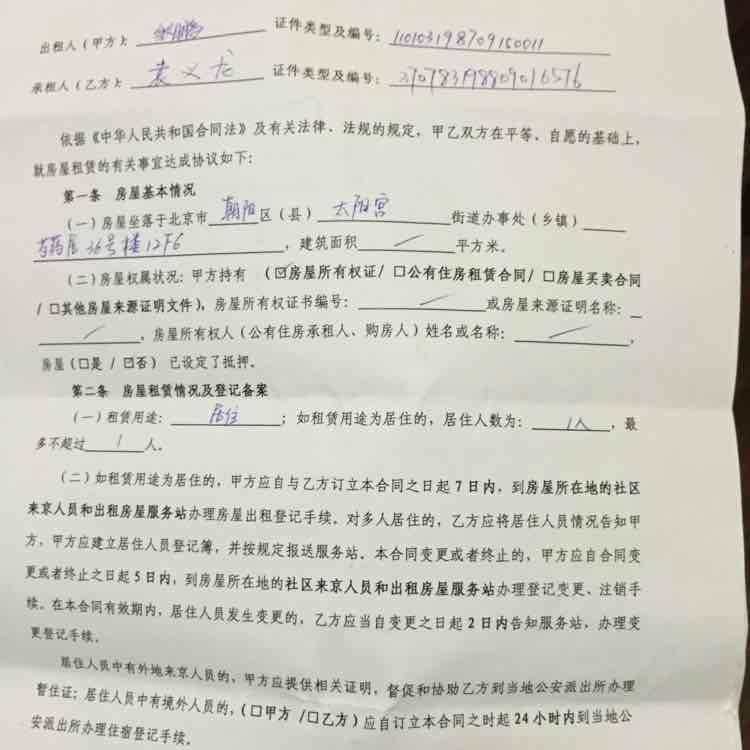 出租人（甲方）： 证件类型及编号：110103198709150011
承租人（乙方）：袁义龙 证件类型及编号：370783198809016576
依据《中华人民共和国合同法》及有关法律、法规的规定，甲乙双方在平等、自愿的基础上，
就房屋租赁的有关事宜达成协议如下：
第一条 房屋基本情况
（一）房屋坐落于北京市朝阳区（县）太阳宫街道办事处（乡镇）
芍药居36号楼12F6，建筑面积 / 平方米。
（二）房屋权属状况：甲方持有（☑房屋所有权证/□公有住房租赁合同/□房屋买卖合同
/□其他房屋来源证明文件），房屋所有权证书编号： / 或房屋来源证明名称：
/ ，房屋所有权人（公有住房承租人、购房人）姓名或名称： / ，
房屋（□是/☑否）已设定了抵押。
第二条 房屋租赁情况及登记备案
（一）租赁用途：居住；如租赁用途为居住的，居住人数为：1人，最
多不超过1人。
（二）如租赁用途为居住的，甲方应自与乙方订立本合同之日起7日内，到房屋所在地的社区
来京人员和出租房屋服务站办理房屋出租登记手续。对多人居住的，乙方应将居住人员情况告知甲
方，甲方应建立居住人员登记簿，并按规定报送服务站。本合同变更或者终止的，甲方应自合同变
更或者终止之日起5日内，到房屋所在地的社区来京人员和出租房屋服务站办理登记变更、注销手
续。在本合同有效期内，居住人员发生变更的，乙方应当自变更之日起2日内告知服务站，办理变
更登记手续。
居住人员中有外地来京人员的，甲方应提供相关证明，督促和协助乙方到当地公安派出所办理
暂住证；居住人员中有境外人员的，（□甲方/□乙方）应自订立本合同之时起24小时内到当地公
安派出所办理住宿登记手续。